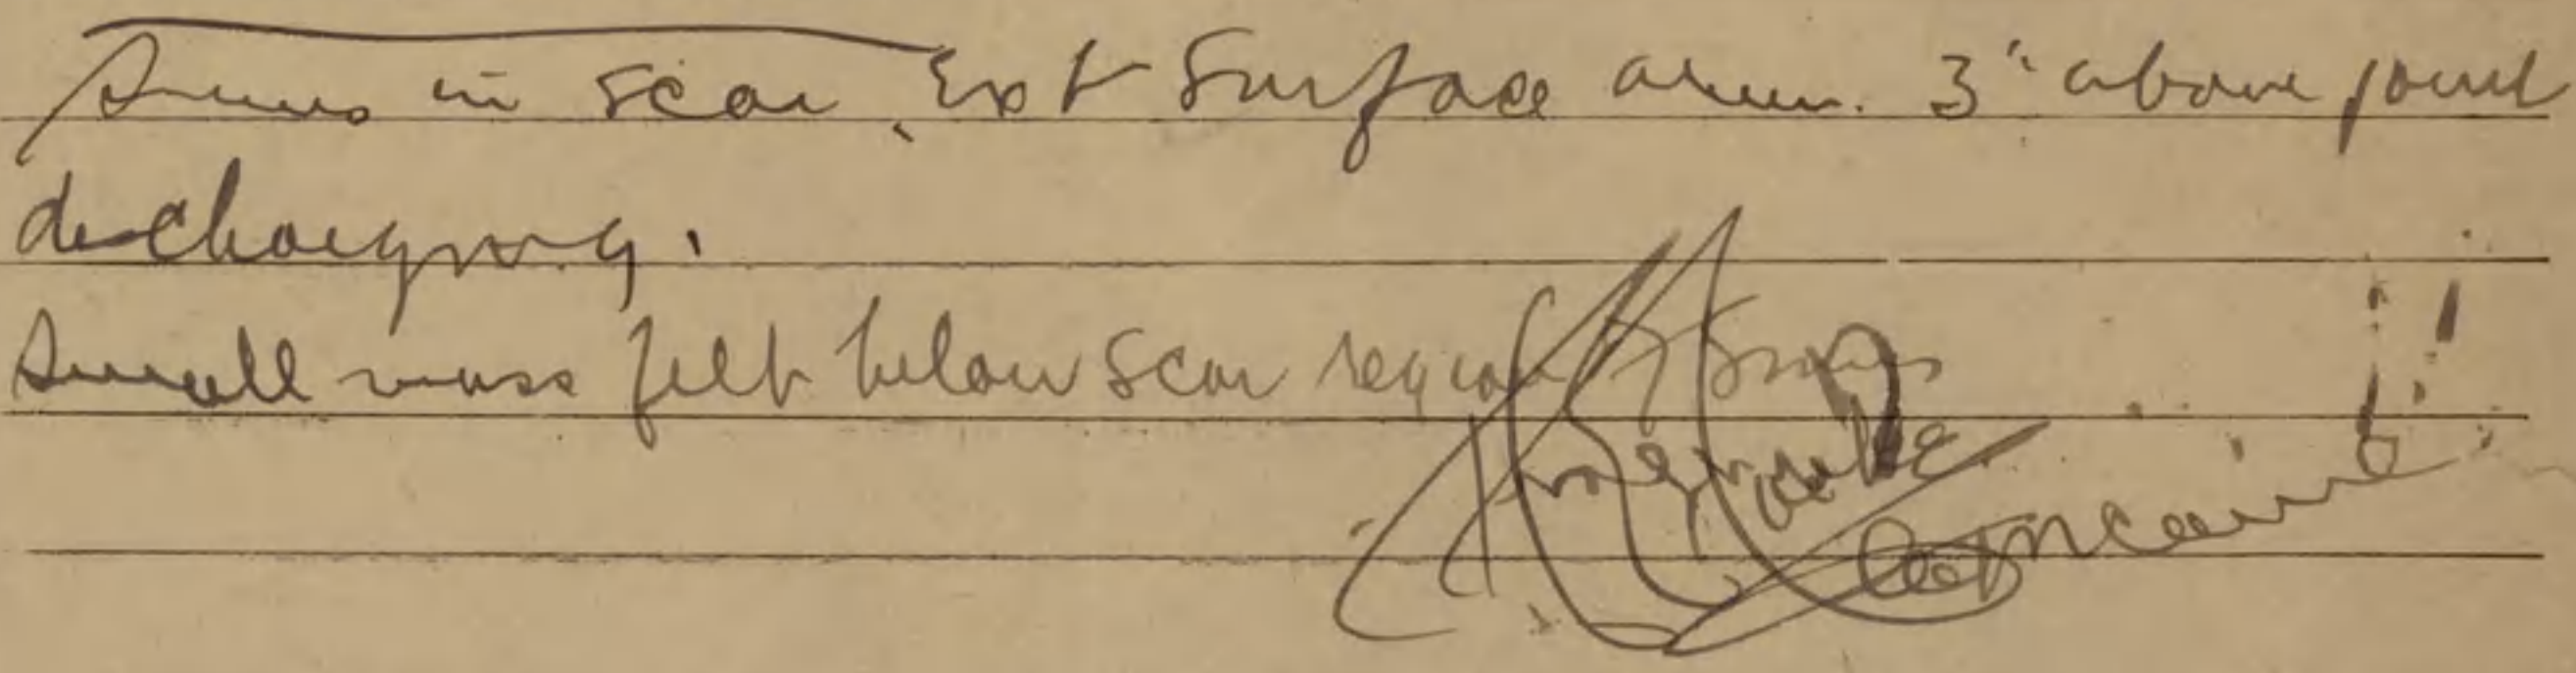 Sinus in scar, Ext surface arm. 3" above joint
discharging.
Small mass felt below scar region of Sinus